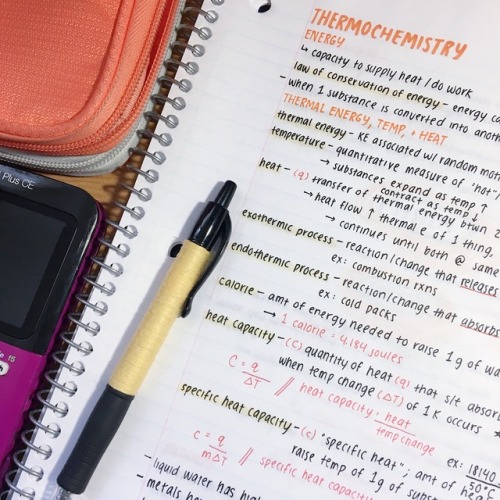 THERMOCHEMISTRY
ENERGY
↳ capacity to supply heat / do work
law of conservation of energy - energy ca
- when 1 substance is converted into anoth
THERMAL ENERGY, TEMP, + HEAT
thermal energy - KE associated w/ random mot
temperature - quantitative measure of "hot"/
→ substances expand as temp ↑
contract as temp ↓
heat - (q) transfer of thermal energy btwn 2
→ heat flow ↑ thermal e of 1 thing,
→ continues until both @ same
exothermic process - reaction/change that releases
ex: combustion rxns
endothermic process - reaction/change that absorbs
ex: cold packs
calorie - amt of energy needed to raise 1 g of wa
→ 1 calorie = 4.184 joules
heat capacity - (C) quantity of heat (q) that s/t absorb
when temp change (ΔT) of 1 K occurs
C = q/ΔT // heat capacity = heat/temp change
specific heat capacity - (c) "specific heat"; amt of hea
raise temp of 1 g of sub
c = q/mΔT // specific heat capacity
ex: 1814J
50
- liquid water has hig
- metals ha
Plus CE